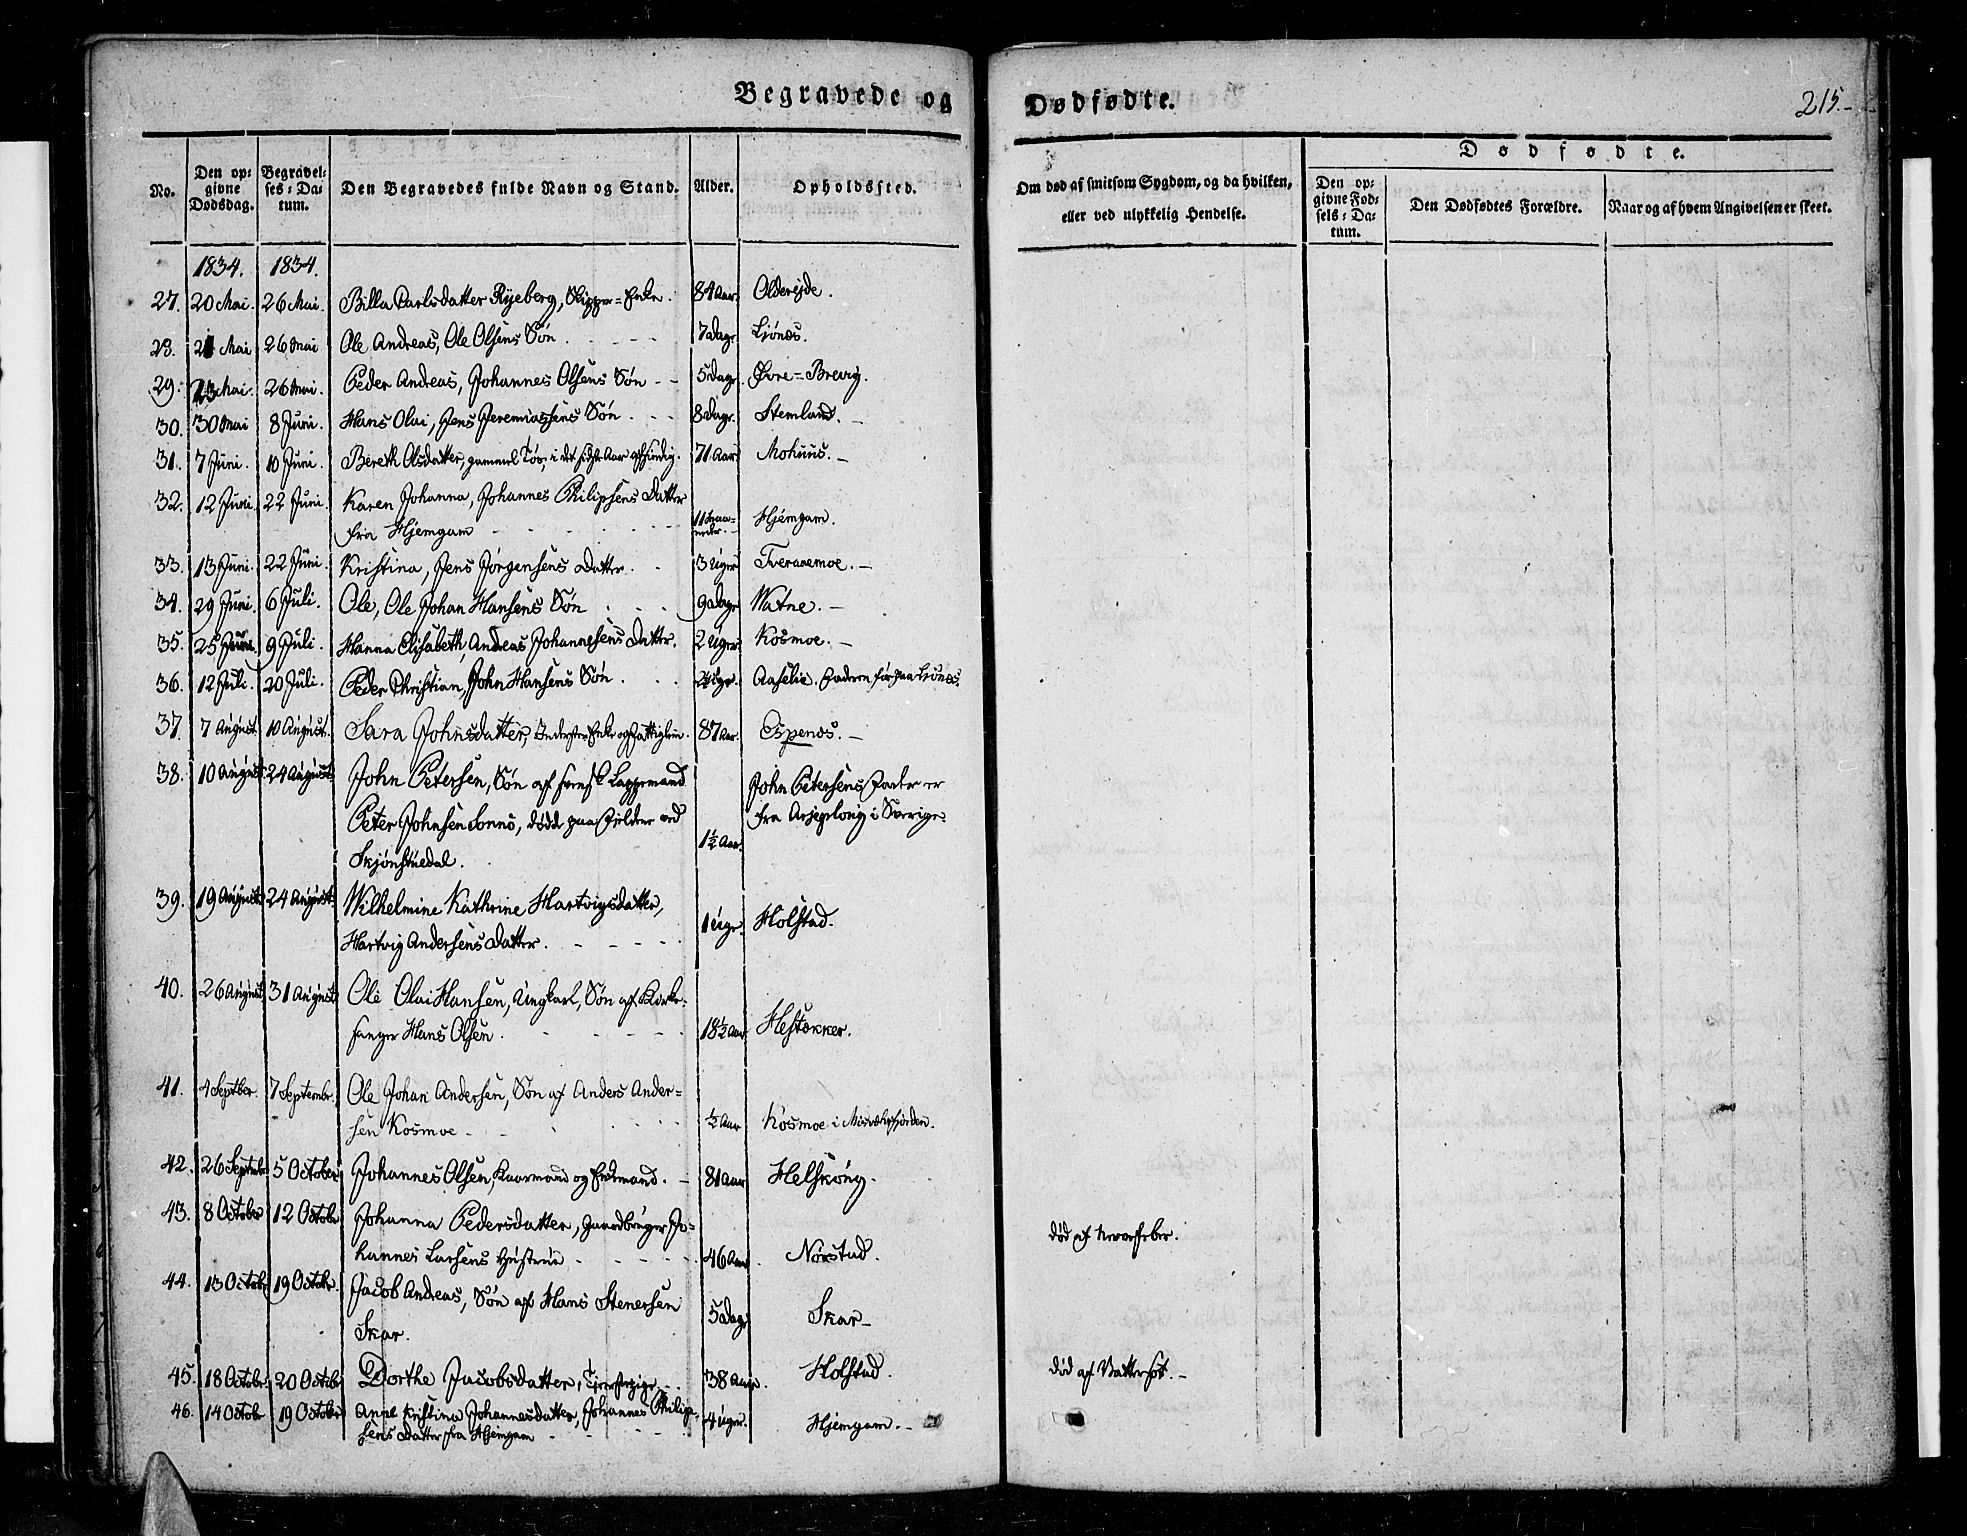 Begravede og Dødfødte.
215.
No.
Den opgivne Dødsdag.
Begravelses-Datum.
Den Begravedes fulde Navn og Stand.
Alder.
Opholdssted.
Om død af smitsom Sygdom, og da hvilken,
eller ved ulykkelig Hendelse.
Dødfødte.
Den opgivne Fødsels-Datum.
Den Dødfødtes Forældre.
Naar og af hvem Angivelsen er skeet.
1834. 1834.
27. 20 Mai. 26 Mai. Billa Carlsdatter Ryeberg, Skipper=Enke. 84 Aar. Oldereide.
28. 21 Mai 26 Mai Ole Andreas, Ole Olsens Søn. 7 Dage. Ljønes.
29. 23 Mai. 26 Mai. Peder Andreas, Johannes Olsens Søn 5 Dage. Øvre=Brevig.
30. 30 Mai 8 Juni. Hans Olai, Jens Jeremiassens Søn. 8 Dage. Stemland.
31. 7 Juni. 10 Juni. Bereth Olsdatter, gammel Tøs, i det sidste Aar afsindig. 71 Aar. Mohuus.
32. 12 Juni. 22 Juni. Karen Johanna, Johannes Philipsens Datter
fra Hjemgam 11 Maaneder. Hjemgam.
33. 13 Juni. 22 Juni. Kristina, Jens Jørgensens Datter. 3 Uger Tveraaemoe.
34. 29 Juni. 6 Juli. Ole, Ole Johan Hansens Søn 9 Dage Watne.
35. 25 Juni. 9 Juli. Hanna Elisabeth, Andreas Johannesens Datter. 2 Uger. Kosmoe.
36. 12 Juli. 20 Juli. Peder Christian, John Hansens Søn. Uger. Aaselie. Faderen før paa Ljønes.
37. 7 August 10 August. Sara Johnsdatter, Enke og Fattiglem. 87 Aar. Espenes.
38. 10 August 24 August John Petersen, Søn af svensk Lappemand
Peter Johnsen Sonno, død paa Fjeldet ved
Skjønstuedal. 1½ Aar. John Petersens Fader er
fra Arjeploug i Sverige.
39. 19 August 24 August. Wilhelmine Kathrine Hartvigsdatter,
Hartvig Andersens Datter. 1 Uge. Holstad.
40. 26 August 31 August Ole Olai Hansen, Ungkarl, Søn af Kirkesanger
Hans Olsen. 18½ Aar Hestækker.
41. 4 Septber. 7 Septembr. Ole Johan Andersen, Søn af Anders Andersen
Kosmoe ½ Aar Kosmoe i Misværfjorden.
42. 26 Septembr 5 October Johannes Olsen, Kaarmand og Enkemand. 81 Aar Helskóug.
43. 8 October 12 Octobr Johanna Pedersdatter, Gaardbruger Johannes
Larsens Hustrue 46 Aar. Nørstad. død af Nervefeber.
44. 13 Octobr 19 Octobr. Jacob Andreas, Søn af Hans Stenersen
Skar. 5 Dage Skar
45. 18 Octobr. 20 Octobr Dorthe Jacobsdatter, Tjenestepige. 38 Aar. Holstad. død af Vattersot.
46. 14 Octobr 19 October Anne Kristina Johannesdatter, Johannes Philipsens
Datter fra Hjemgam 4 Uger. Hjemgam.